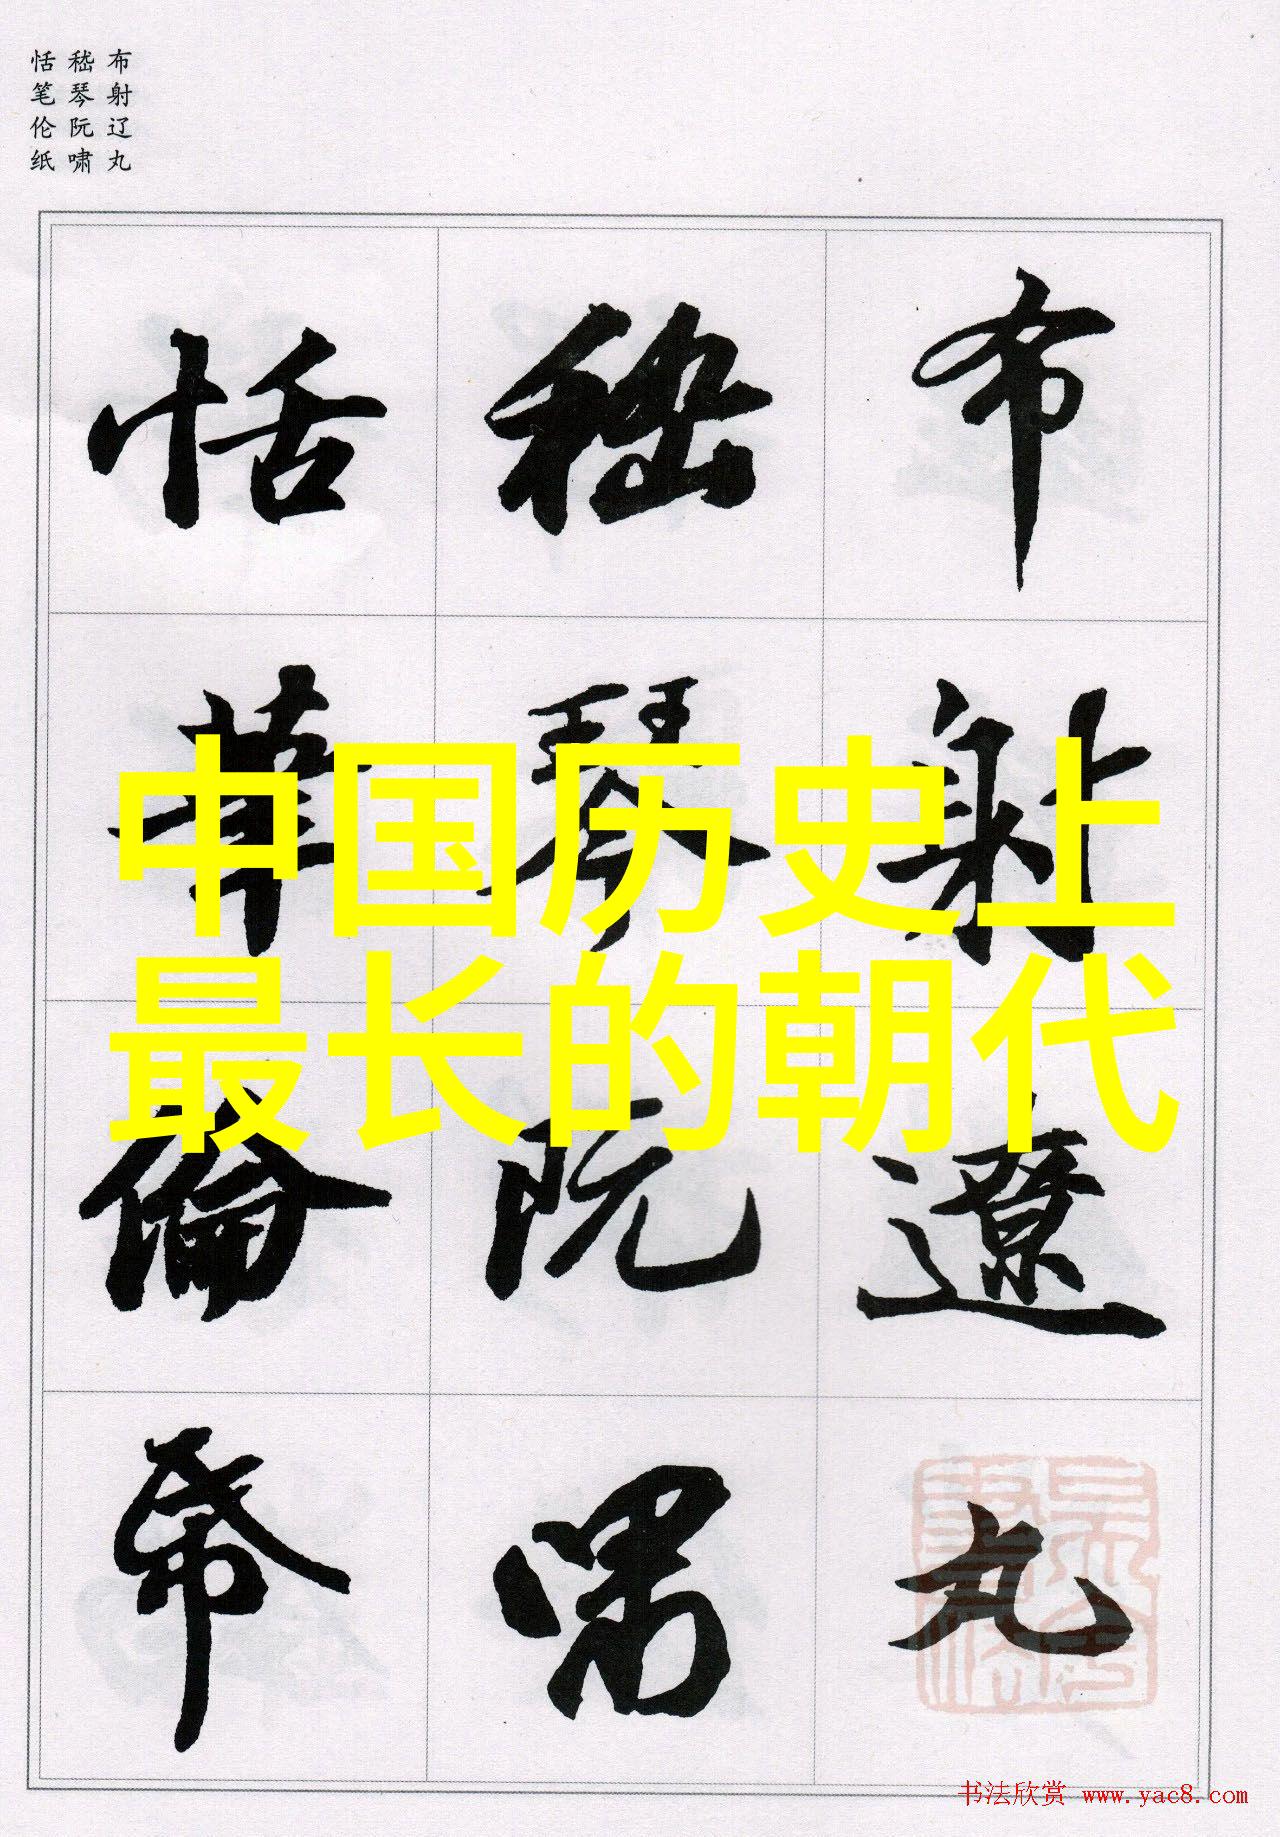 布射辽丸
嵇琴阮啸
恬笔伦纸
布射遼丸
嵇琴阮嘯
恬筆倫帋
中国历史上
最长的朝代
书法欣赏 www.yac8.com